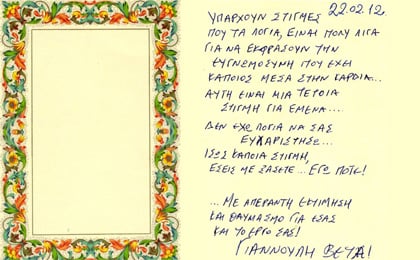 22.02.12.
ΥΠΑΡΧΟΥΝ ΣΤΙΓΜΕΣ
ΠΟΥ ΤΑ ΛΟΓΙΑ, ΕΙΝΑΙ ΠΟΛΥ ΛΙΓΑ
ΓΙΑ ΝΑ ΕΚΦΡΑΣΟΥΝ ΤΗΝ
ΕΥΓΝΩΜΟΣΥΝΗ ΠΟΥ ΕΧΕΙ
ΚΑΠΟΙΟΣ ΜΕΣΑ ΣΤΗΝ ΚΑΡΔΙΑ...
ΑΥΤΗ ΕΙΝΑΙ ΜΙΑ ΤΕΤΟΙΑ
ΣΤΙΓΜΗ ΓΙΑ ΕΜΕΝΑ...
ΔΕΝ ΕΧΩ ΛΟΓΙΑ ΝΑ ΣΑΣ
ΕΥΧΑΡΙΣΤΗΣΩ...
ΙΣΩΣ ΚΑΠΟΙΑ ΣΤΙΓΜΗ,
ΕΣΕΙΣ ΜΕ ΞΑΣΕΤΕ... ΕΓΩ ΠΟΤΕ!
... ΜΕ ΑΠΕΡΑΝΤΗ ΕΚΤΙΜΗΣΗ
ΚΑΙ ΘΑΥΜΑΣΜΟ ΓΙΑ ΕΣΑΣ
ΚΑΙ ΤΟ ΕΡΓΟ ΣΑΣ!
ΓΙΑΝΝΟΥΛΗ